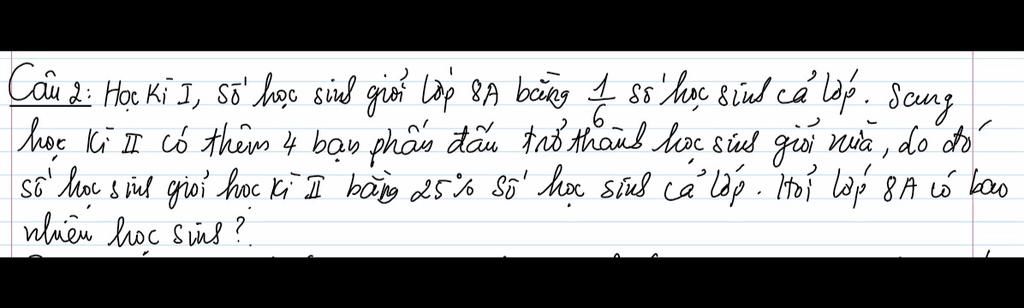 Câu 2: Học Kì I, số học sinh giỏi lớp 8A bằng 1/6 số học sinh cả lớp. Sang
học kì II có thêm 4 bạn phấn đấu trở thành học sinh giỏi nữa, do đó
số học sinh giỏi học kì II bằng 25% số học sinh cả lớp. Hỏi lớp 8A có bao
nhiêu học sinh?